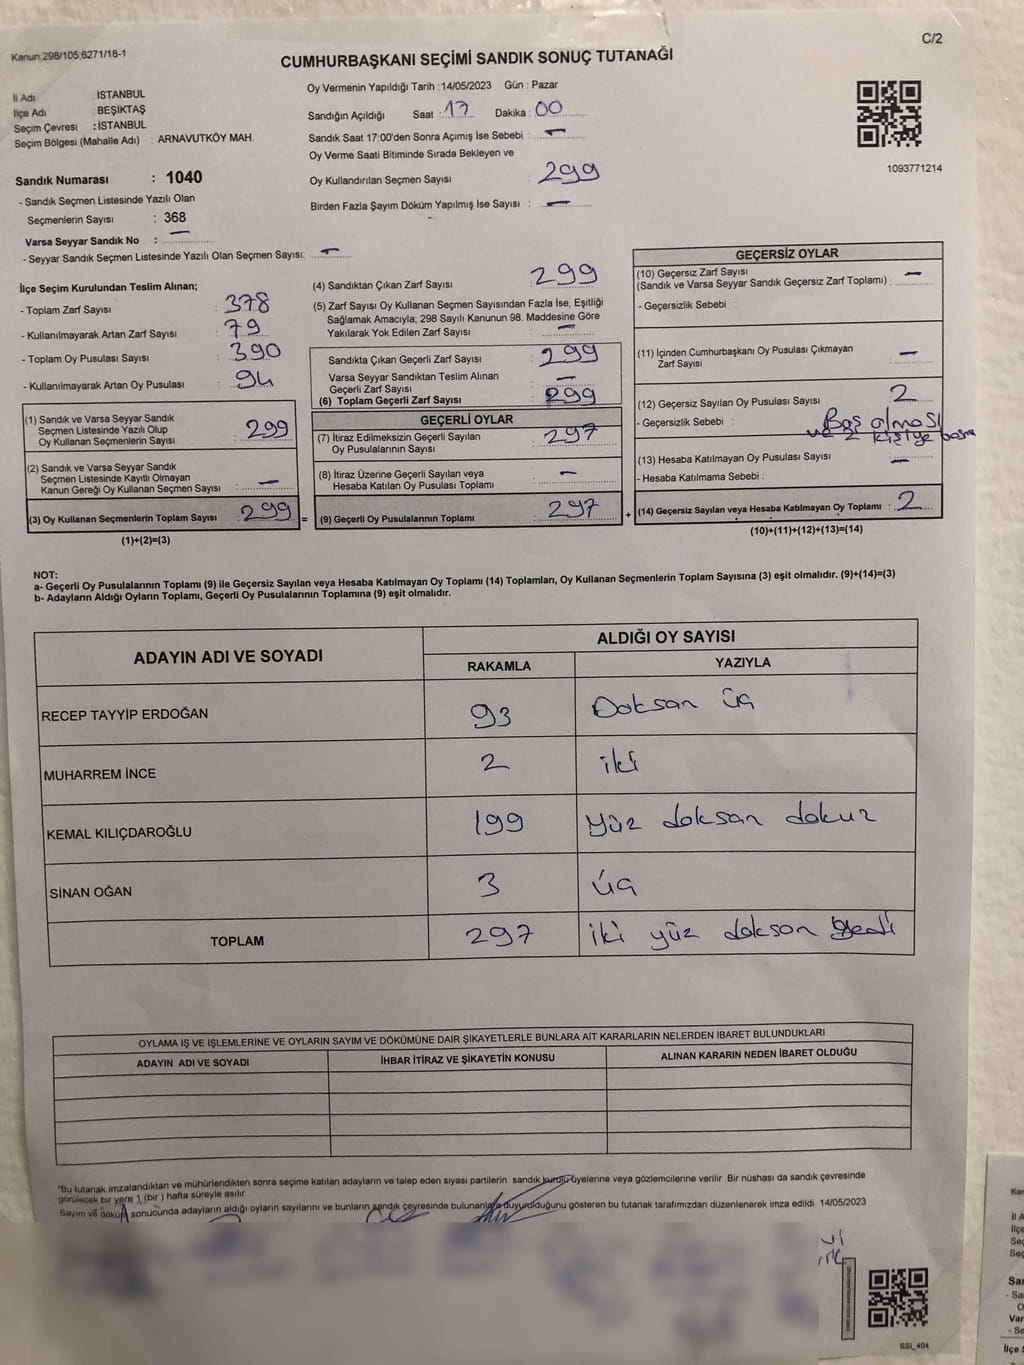 Kanun:298/105;6271/18-1
C/2
CUMHURBAŞKANI SEÇİMİ SANDIK SONUÇ TUTANAĞI
İl Adı : İSTANBUL
İlçe Adı : BEŞİKTAŞ
Seçim Çevresi : İSTANBUL
Seçim Bölgesi (Mahalle Adı) : ARNAVUTKÖY MAH.
Sandık Numarası : 1040
- Sandık Seçmen Listesinde Yazılı Olan
Seçmenlerin Sayısı : 368
Varsa Seyyar Sandık No : —
- Seyyar Sandık Seçmen Listesinde Yazılı Olan Seçmen Sayısı: —
Oy Vermenin Yapıldığı Tarih :14/05/2023 Gün : Pazar
Sandığın Açıldığı Saat : 17 Dakika : 00
Sandık Saat 17:00'den Sonra Açımış İse Sebebi : —
Oy Verme Saati Bitiminde Sırada Bekleyen ve
Oy Kullandırılan Seçmen Sayısı : 299
Birden Fazla Şayım Döküm Yapılmış İse Sayısı : —
1093771214
İlçe Seçim Kurulundan Teslim Alınan;
- Toplam Zarf Sayısı : 378
- Kullanılmayarak Artan Zarf Sayısı : 79
- Toplam Oy Pusulası Sayısı : 390
- Kullanılmayarak Artan Oy Pusulası : 94
(1) Sandık ve Varsa Seyyar Sandık
Seçmen Listesinde Yazılı Olup
Oy Kullanan Seçmenlerin Sayısı : 299
(2) Sandık ve Varsa Seyyar Sandık
Seçmen Listesinde Kayıtlı Olmayan
Kanun Gereği Oy Kullanan Seçmen Sayısı : —
(3) Oy Kullanan Seçmenlerin Toplam Sayısı : 299 =
(1)+(2)=(3)
(4) Sandıktan Çıkan Zarf Sayısı : 299
(5) Zarf Sayısı Oy Kullanan Seçmen Sayısından Fazla İse, Eşitliği
Sağlamak Amacıyla; 298 Sayılı Kanunun 98. Maddesine Göre
Yakılarak Yok Edilen Zarf Sayısı : —
Sandıkta Çıkan Geçerli Zarf Sayısı : 299
Varsa Seyyar Sandıktan Teslim Alınan
Geçerli Zarf Sayısı : —
(6) Toplam Geçerli Zarf Sayısı : 299
GEÇERLİ OYLAR
(7) İtiraz Edilmeksizin Geçerli Sayılan
Oy Pusulasının Sayısı : 297
(8) İtiraz Üzerine Geçerli Sayılan veya
Hesaba Katılan Oy Pusulası Toplamı : —
(9) Geçerli Oy Pusulalarının Toplamı : 297 +
GEÇERSİZ OYLAR
(10) Geçersiz Zarf Sayısı
(Sandık ve Varsa Seyyar Sandık Geçersiz Zarf Toplamı) : —
- Geçersizlik Sebebi :
(11) İçinden Cumhurbaşkanı Oy Pusulası Çıkmayan
Zarf Sayısı : —
(12) Geçersiz Sayılan Oy Pusulası Sayısı : 2
- Geçersizlik Sebebi : Boş olması
ve 2 kişiye basma
(13) Hesaba Katılmayan Oy Pusulası Sayısı : —
- Hesaba Katılmama Sebebi :
(14) Geçersiz Sayılan veya Hesaba Katılmayan Oy Toplamı : 2
(10)+(11)+(12)+(13)=(14)
NOT:
a- Geçerli Oy Pusulalarının Toplamı (9) ile Geçersiz Sayılan veya Hesaba Katılmayan Oy Toplamı (14) Toplamları, Oy Kullanan Seçmenlerin Toplam Sayısına (3) eşit olmalıdır. (9)+(14)=(3)
b- Adayların Aldığı Oyların Toplamı, Geçerli Oy Pusulalarının Toplamına (9) eşit olmalıdır.
ADAYIN ADI VE SOYADI
ALDIĞI OY SAYISI
RAKAMLA YAZIYLA
RECEP TAYYİP ERDOĞAN 93 Doksan üç
MUHARREM İNCE 2 iki
KEMAL KILIÇDAROĞLU 199 yüz doksan dokuz
SİNAN OĞAN 3 üç
TOPLAM 297 iki yüz doksan yedi
OYLAMA İŞ VE İŞLEMLERİNE VE OYLARIN SAYIM VE DÖKÜMÜNE DAİR ŞİKAYETLERLE BUNLARA AİT KARARLARIN NELERDEN İBARET BULUNDUKLARI
ADAYIN ADI VE SOYADI İHBAR İTİRAZ VE ŞİKAYETİN KONUSU ALINAN KARARIN NEDEN İBARET OLDUĞU
"Bu tutanak imzalandıktan ve mühürlendikten sonra seçime katılan adayların ve talep eden siyasi partilerin sandık kurulu üyelerine veya gözlemcilerine verilir. Bir nüshası da sandık çevresinde
görülecek bir yere 1 (bir) hafta süreyle asılır.
Sayım ve döküm sonucunda adayların aldığı oyların sayılarını ve bunların sandık çevresinde bulunanlara duyurulduğunu gösteren bu tutanak tarafımızdan düzenlenerek imza edildi. 14/05/2023